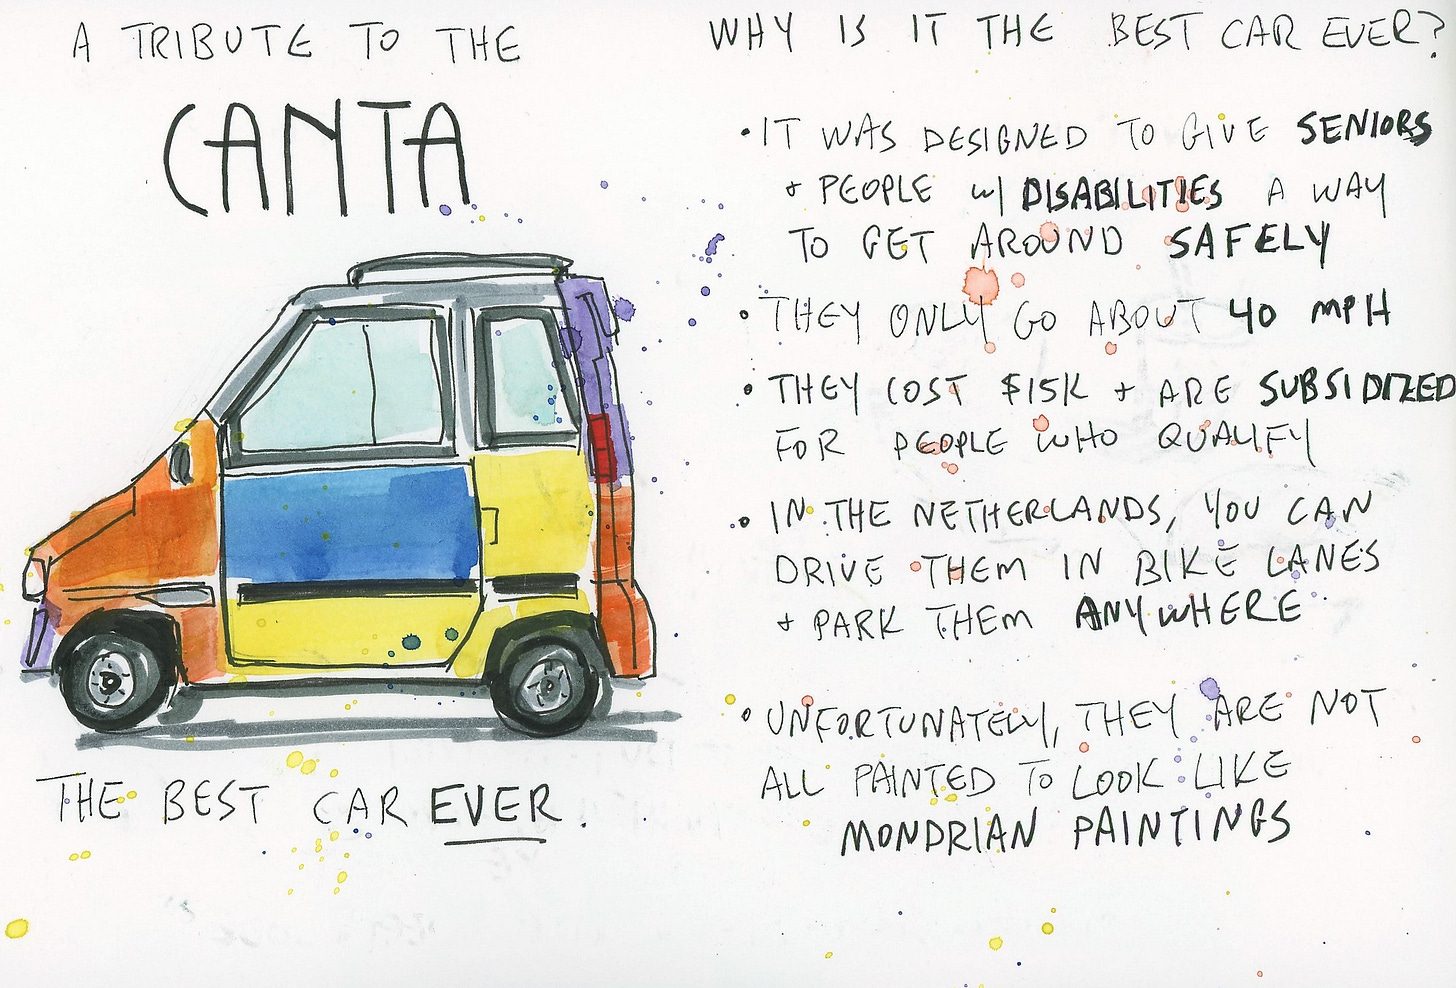 A TRIBUTE TO THE
CANTA
THE BEST CAR EVER.
WHY IS IT THE BEST CAR EVER?
• IT WAS DESIGNED TO GIVE SENIORS
+ PEOPLE w/ DISABILITIES A WAY
TO GET AROUND SAFELY
• THEY ONLY GO ABOUT 40 MPH
• THEY COST $15K + ARE SUBSIDIZED
FOR PEOPLE WHO QUALIFY
• IN THE NETHERLANDS, YOU CAN
DRIVE THEM IN BIKE LANES
+ PARK THEM ANYWHERE
• UNFORTUNATELY, THEY ARE NOT
ALL PAINTED TO LOOK LIKE
MONDRIAN PAINTINGS